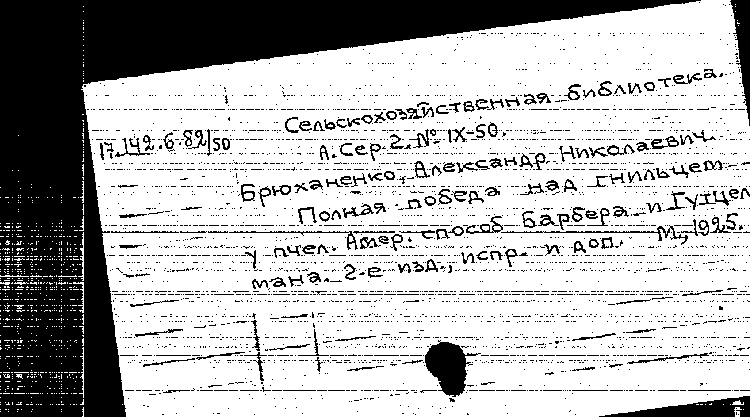 Сельскохозяйственная библиотека.
17.142.6.82/50
А. Сер. 2. № IX-50.
Брюханенко, Александр Николаевич.
Полная победа над гнильцем
у пчел. Амер. способ Барбера и Гутцел
мана. 2-е изд., испр. и доп. М., 1925.